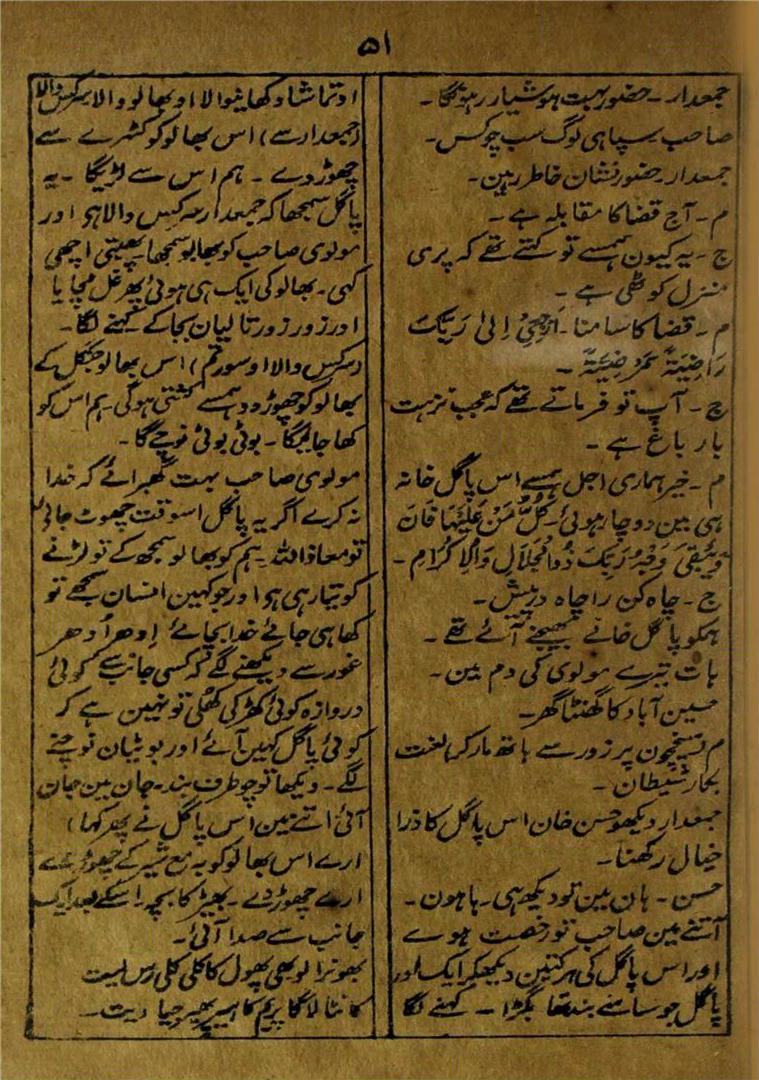 ۵۱
جمعدار۔ حضور بہت ہوشیار رہونگا۔
صاحب سپاہی لوگ سب چوکس۔
جمعدار۔ حضور نشان خاطر رہین۔
م۔ آج قضا کا مقابلہ ہے۔
ج۔ یہ کیون ہمسے تو کہتے تھے کہ پری
منزل کوٹھی ہے۔
م۔ قضا کا سامنا۔ اَرْجِعِیْ اِلیٰ رَبِّکَ
رَاضِیَۃً مَّرْضِیَّۃً۔
ج۔ آپ تو فرماتے تھے کہ عجب نزہت
بار باغ ہے۔
م۔ خیر ہماری اجل ہمسے اس پاگل خانہ
ہی مین دوچار ہوئی۔ کُلُّ مَنْ عَلَیْہَا فَان
وَیَبْقیٰ وَجْہُ رَبِّکَ ذُوالْجَلَالِ وَالْاِکْرَامِ۔
ج۔ چاہ کن را چاہ درپیش۔
ہمکو پاگل خانے بھیجنے آئے تھے۔
بات تیرے مولوی کی دم مین۔
حسین آباد کا گھنٹا گھر۔
م سیخچون پر زور سے ہاتھ مار کر لعنت
بکار شیطان۔
جمعدار دیکھو حسن خان اس پاگل کا ذرا
خیال رکھنا۔
حسن۔ ہان مین تو دیکھ ہی رہا ہون۔
اتنے مین صاحب تو رخصت ہوے
اور اس پاگل کی حرکتین دیکھکر ایک اور
پاگل جو سامنے بندھا تھا بگڑا۔ کہنے لگا
او تماشا دکھانیوالا او بھالو والا سرکس والا
(جمعدار سے) اس بھالو کو کٹہرے سے
چھوڑ دے۔ ہم اس سے لڑیگا۔ یہ
پاگل سمجھا کہ جمعدار سرکس والا ہو اور
مولوی صاحب کو بھالو سمجھا۔ پھبتی اچھی
کہی۔ بھالو کی ایک ہی ہوئی پھر غل مچایا
اور زور زور تالیان بجا کے کہنے لگا۔
(سرکس والا او سور تم) اس بھالو جنگل کے
بھالو کو چھوڑ دو ہمسے کشتی ہوگی۔ ہم اس کو
کھا جائیگا۔ بوٹی بوٹی نوچے گا۔
مولوی صاحب بہت گھبرائے کہ خدا
نہ کرے اگر یہ پاگل اسوقت چھوٹ جائے
تو معاذ اللہ۔ ہم کو بھالو سمجھ کے تو لڑنے
کو تیار ہی ہو اور جو کہین انسان سمجھے تو
کھا ہی جائے خدا بچائے اِدھر اُدھر
غور سے دیکھنے لگے کہ کسی جانب سے کوئی
دروازہ کوئی کھڑکی کھلی تو نہین ہے کہ
کوئی پاگل کہین آئے اور بوٹیان نوچنے
لگے۔ دیکھا تو چوطرف بند۔ جان مین جان
آئی اتنے مین اس پاگل نے پھر کہا)
ارے اس بھالو کو بہ مع شیر کے چھوڑ دے
ارے چھوڑ دے۔ بھیڑ کا بچہ۔ اسکے بعد ایک
جانب سے صدا آئی۔
بھونرا لوبھی پھول کا کلی کلی رس لیت
کانٹا لاگا پریم کا ہیر پھیر جیا دیت۔